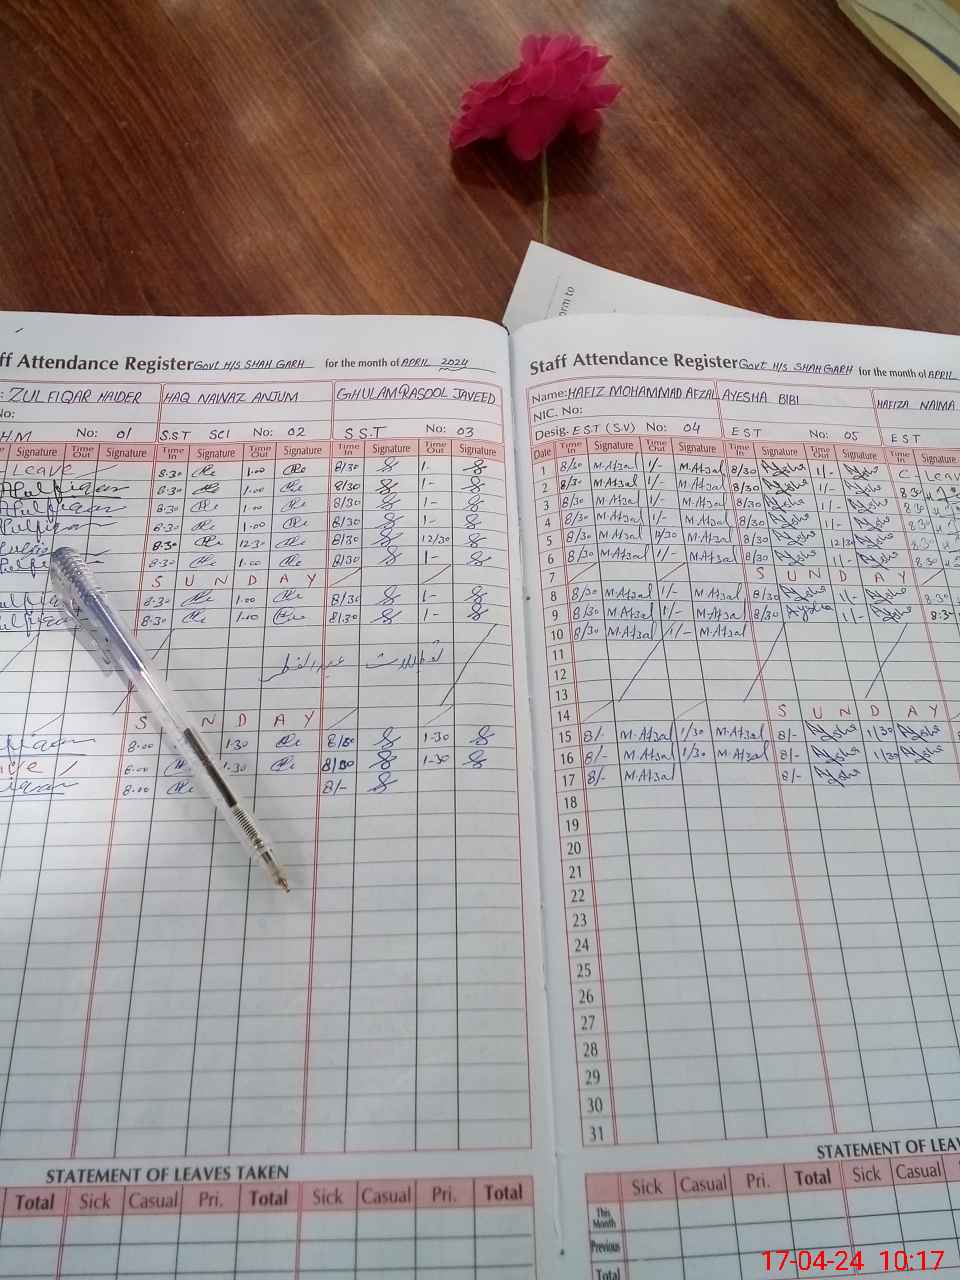 ff Attendance Register Govt H/S SHAH GARH for the month of APRIL 2024
: ZULFIQAR HAIDER HAQ NAWAZ ANJUM GHULAM RASOOL JAVEED
No:
H.M No: 01 S.S.T Sci No: 02 S.S.T No: 03
Signature Time Out Signature Time In Signature Time Out Signature Time In Signature Time Out Signature
Leave 8.30 1.00 8/30 1-
8.30 1.00 8/30 1-
8.30 1.00 8/30 1-
8.30 1.00 8/30 1-
8.30 12.30 8/30 12/30
8.30 1.00 8/30 1-
S U N D A Y
8.30 1.00 8/30 1-
8.30 1.00 8/30 1-
S N D A Y
8.00 1.30 1-30
8.00 1.30 1-30
8.00 8/-
STATEMENT OF LEAVES TAKEN
Total Sick Casual Pri. Total Sick Casual Pri. Total
orm to
Staff Attendance Register Govt H/S SHAH GARH for the month of APRIL
Name: HAFIZ MOHAMMAD AFZAL AYESHA BIBI HAFIZA NAIMA
NIC. No:
Desig. EST (S.V) No: 04 EST No: 05 EST
Date Time In Signature Time Out Signature Time In Signature Time Out Signature Time In Signature
1 8/30 M.Afzal 1/- M.Afzal 8/30 Aysha 1/- Aysha C Leav
2 8/30 M.Afzal 1/- M.Afzal 8/30 Aysha 1/- Aysha 8.30
3 8/30 M.Afzal 1/- M.Afzal 8/30 Aysha 1/- Aysha 8.30
4 8/30 M.Afzal 1/- M.Afzal 8/30 Aysha 1/- Aysha 8.30
5 8/30 M.Afzal M.Afzal 8/30 Aysha 12/30 Aysha 8.30
6 8/30 M.Afzal 1/- M.Afzal 8/30 Aysha 1/- Aysha 8.30
7 S U N D A Y
8 8/30 M.Afzal 1/- M.Afzal 8/30 Aysha 1/- Aysha 8.30
9 8/30 M.Afzal 1/- M.Afzal 8/30 Aysha 1/- Aysha 8.3
10 8/30 M.Afzal 1/- M.Afzal
11
12
13
14 S U N D A Y
15 8/- M.Afzal 1/30 M.Afzal 8/- Aysha 1/30 Aysha
16 8/- M.Afzal 1/30 M.Afzal 8/- Aysha 1/30 Aysha
17 8/- M.Afzal 8/- Aysha
18
19
20
21
22
23
24
25
26
27
28
29
30
31
STATEMENT OF LEAV
Sick Casual Pri. Total Sick Casual
This Month
Previous
Total
17-04-24 10:17